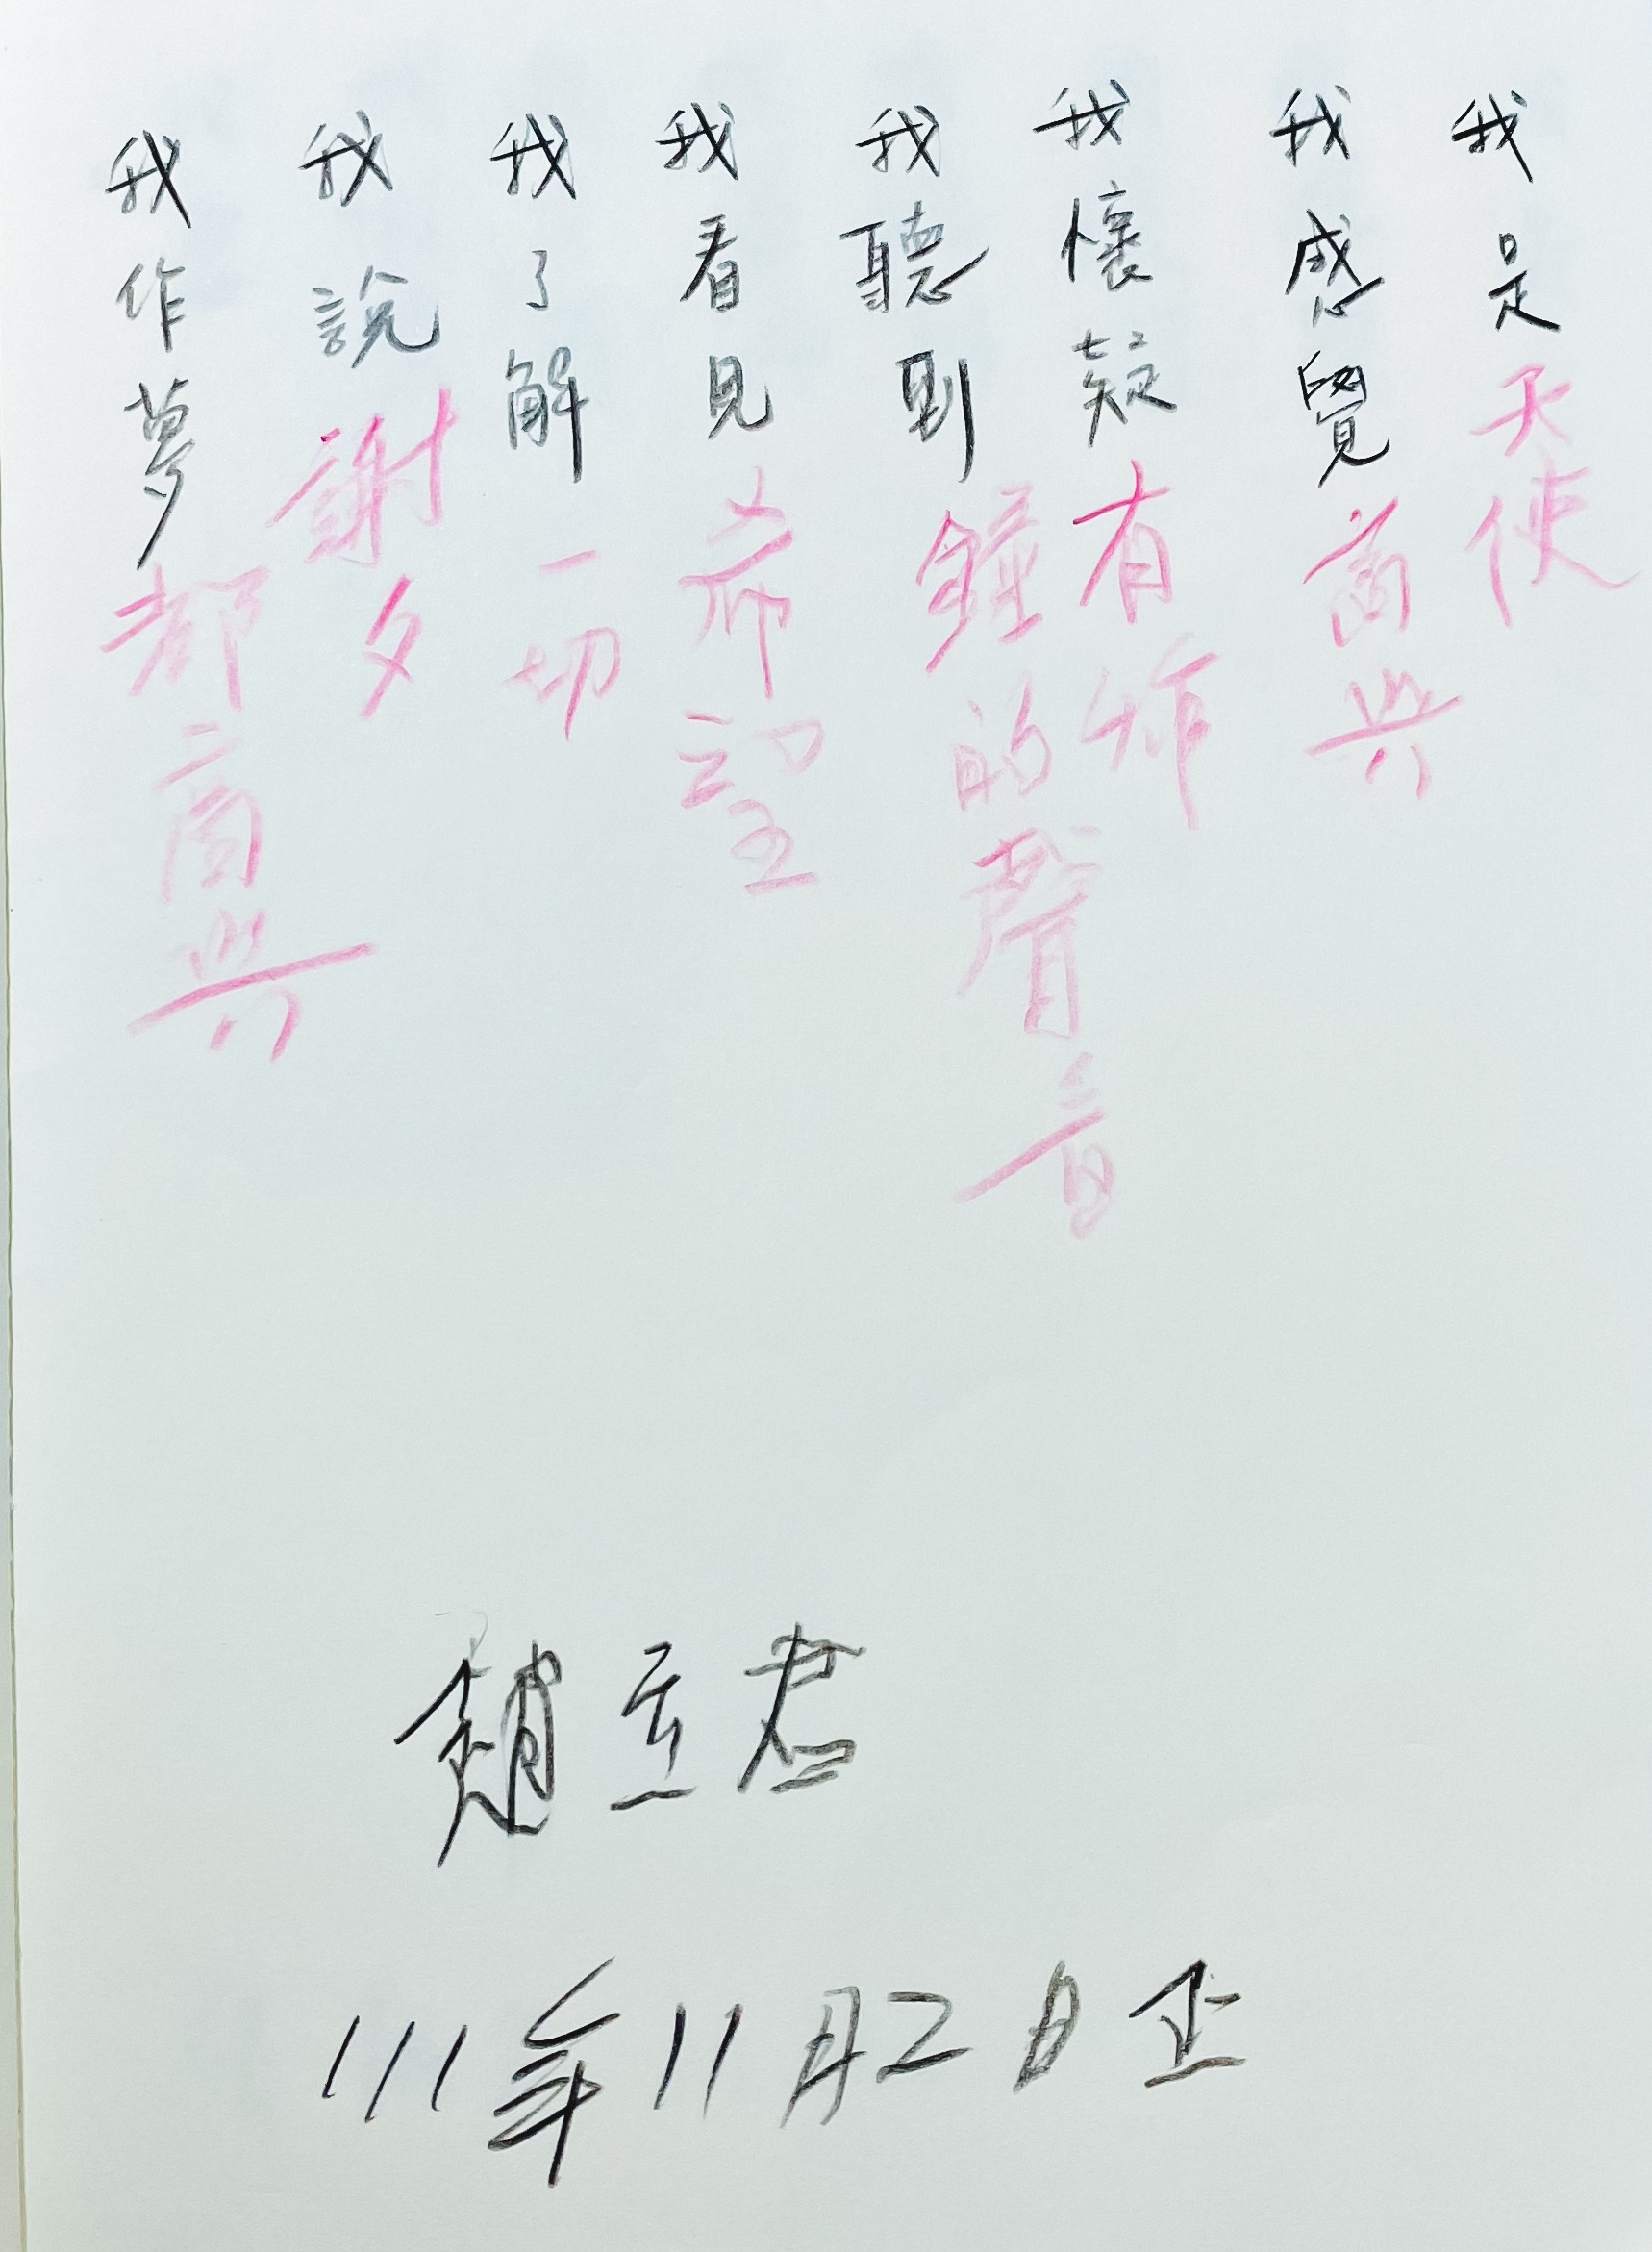 我是天使
我感覺高興
我懷疑有炸
我聽到鐘的聲音
我看見希望
我了解一切
我說謝夕
我作夢都高興
趙立君
111年11月2日正